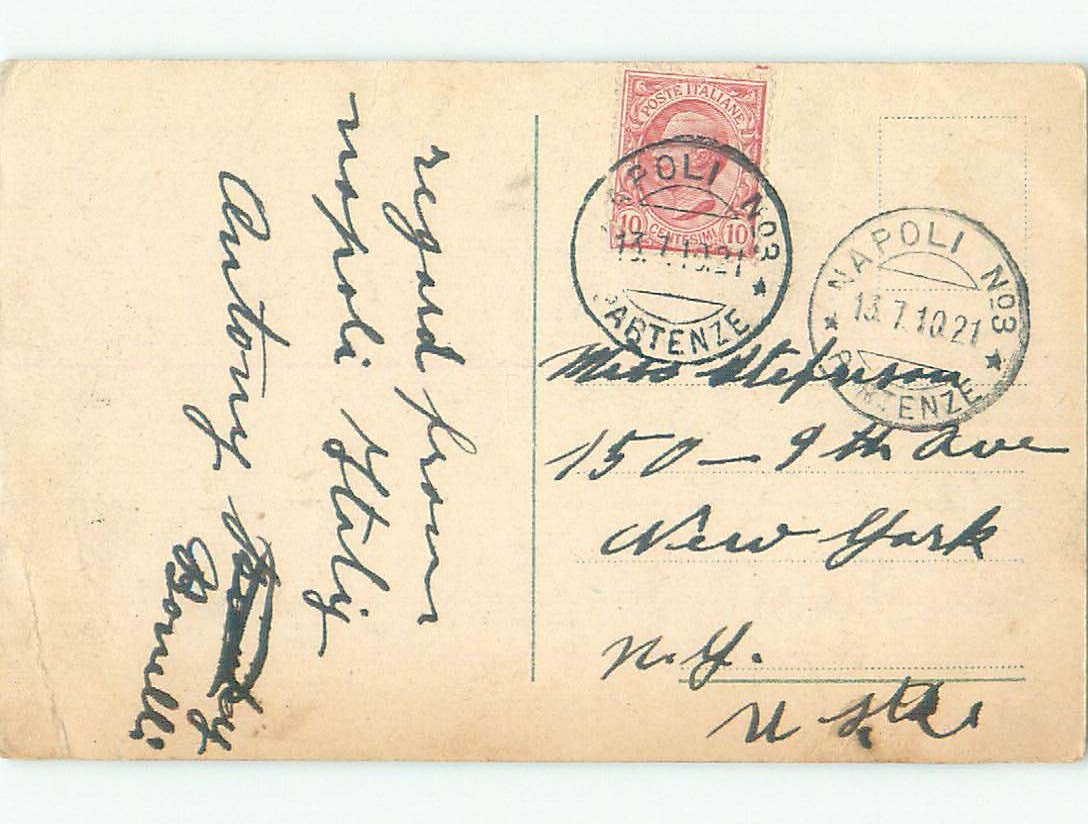 regard from
napoli Italy
Antony
Bonelli
POSTE ITALIANE
10 CENTESIMI 10
NAPOLI No3
13.7.10.21
PARTENZE
NAPOLI No3
13.7.10.21
PARTENZE
Miss
150 – 9th Ave
New York
N.Y.